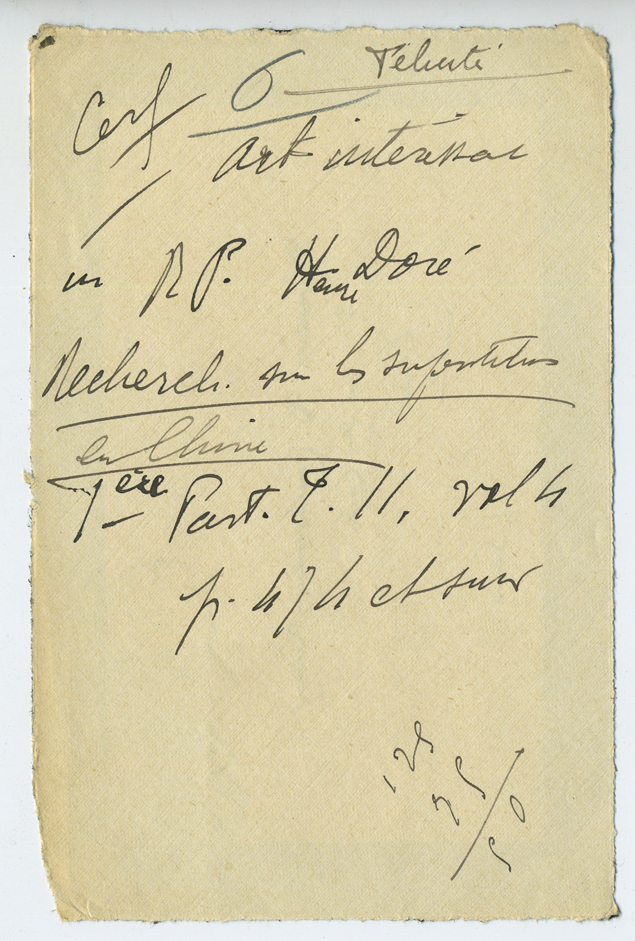 6 Félicité
Cerf
Art intéressant
in R P. Henri Doré
Recherch. sur les superstitions
en Chine
1ère Part. T. II, vol 4
p. 474 et suiv
125
75
50